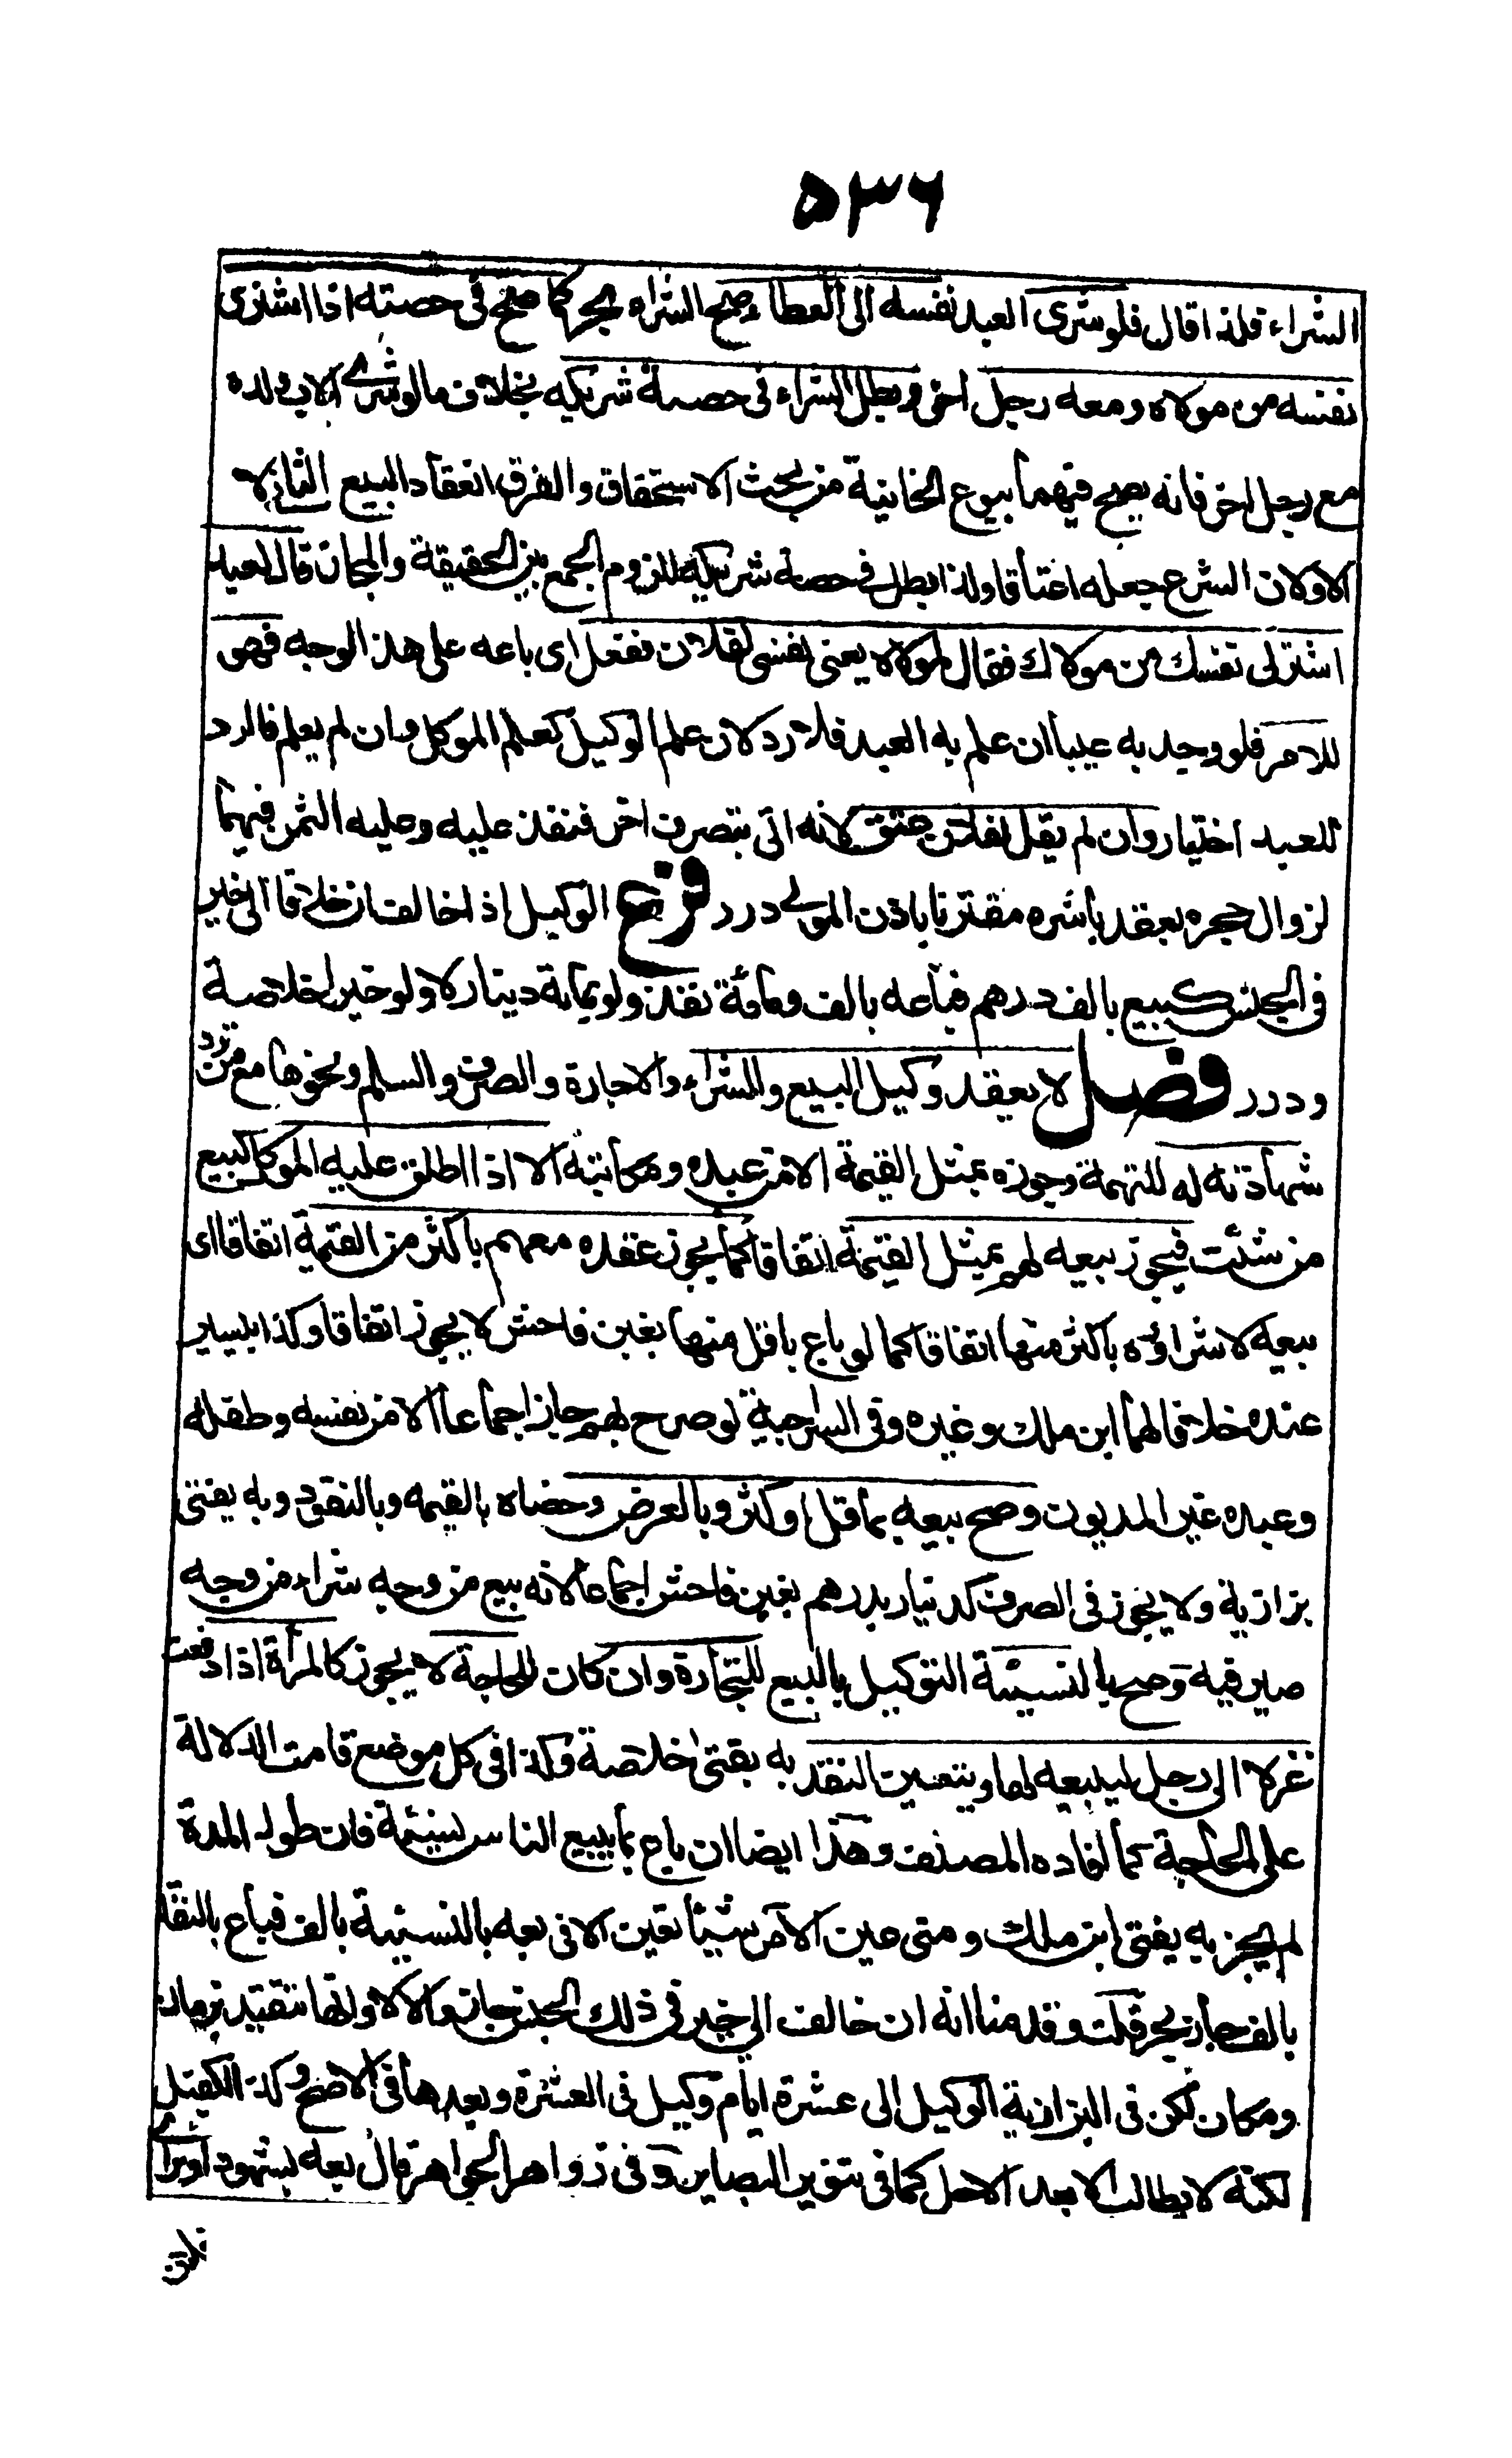 ٥٣٦
الشراء قلنا قال فلو شرى العبد نفسه الى العطاء صح الشراء بحر كما صح في حصته اذا اشترى
نفسه من مولاه ومعه رجل اخر وبطل الشراء في حصة شريكه بخلاف ما لو شرى الاب ولده
مع رجل اخر فانه يصح فيهما بيوع الخانية من بحث الاستحقاق والفرق انعقاد البيع الثاني لا
الاول لان الشرع جعله اعتاقا ولذا بطل في حصة شريكه للزوم الجمع بين الحقيقة والمجاز قال لعبد
اشتر لي نفسك من مولاك فقال لمولاه بعني نفسي لفلان ففعل اى باعه على هذا الوجه فهو
للامر فلو وجد به عيبا ان علم به العبد فلا رد لان علم الوكيل كعلم الموكل وان لم يعلم فالرد
للعبد اختيار وان لم يقل لفلان عتق لانه اتى بتصرف اخر فنفذ عليه وعليه الثمن فيهما
لزوال حجره بعقد باشره مقترنا باذن المولى درر فرع الوكيل اذا خالف ان خلافا الى خير
في الجنس كبيع بالف درهم فباعه بالف ومائة نفذ ولو بمائة دينار لا ولو خيرا خلاصة
ودرر فصل لا يعقد وكيل البيع والشراء والاجارة والصرف والسلم ونحوها مع من ترد
شهادته له للتهمة وجوزه بمثل القيمة الا من عبده ومكاتبه الا اذا اطلق عليه الموكل كبيع
من شئت فيجوز بيعه لهم بمثل القيمة اتفاقا كما يجوز عقده معهم باكثر من القيمة اتفاقا اى
بيعه لا شراؤه باكثر منها اتفاقا كما لو باع باقل منها بغبن فاحش لا يجوز اتفاقا وكذا بيسير
عنده خلافا لهما ابن ملك وغيره وفي السراجية لو صرح بهم جاز اجماعا الا من نفسه وطفله
وعبده غير المديون وصح بيعه بما قل او كثر وبالعرض وخصاه بالقيمه وبالنقود وبه يفتى
بزازية ولا يجوز في الصرف كدينار بدرهم بغبن فاحش اجماعا لانه بيع من وجه شراء من وجه
صيرفيه وصح بالنسيئة التوكيل بالبيع للتجارة وان كان للحاجة لا يجوز كالمرأة اذا دفعت
غزلا الى رجل ليبيعه لها ويتعين النقد به يفتى خلاصة وكذا في كل موضع قامت الدلالة
على الحاجة كما افاده المصنف وهذا ايضا ان باع بما يبيع الناس نسيئة فان طول المدة
لم يجز به يفتى ابن ملك ومتى عين الآمر شيئا تعين الا في بعه بالنسيئة بالف فباع بالنقد
بالف جاز بحر قلت وقدمنا انه ان خالف الى خير في ذلك الجنس جاز والا لا وانها تتقيد بزمان
ومكان لكن في البزازية الوكيل الى عشرة ايام وكيل في العشرة وبعدها في الاصح وكذا الكفيل
لكنه لا يطالب الا بعد الاجل كما في تنوير البصاير وفي زواهر الجواهر قال بعه بشهود او براى
فلان